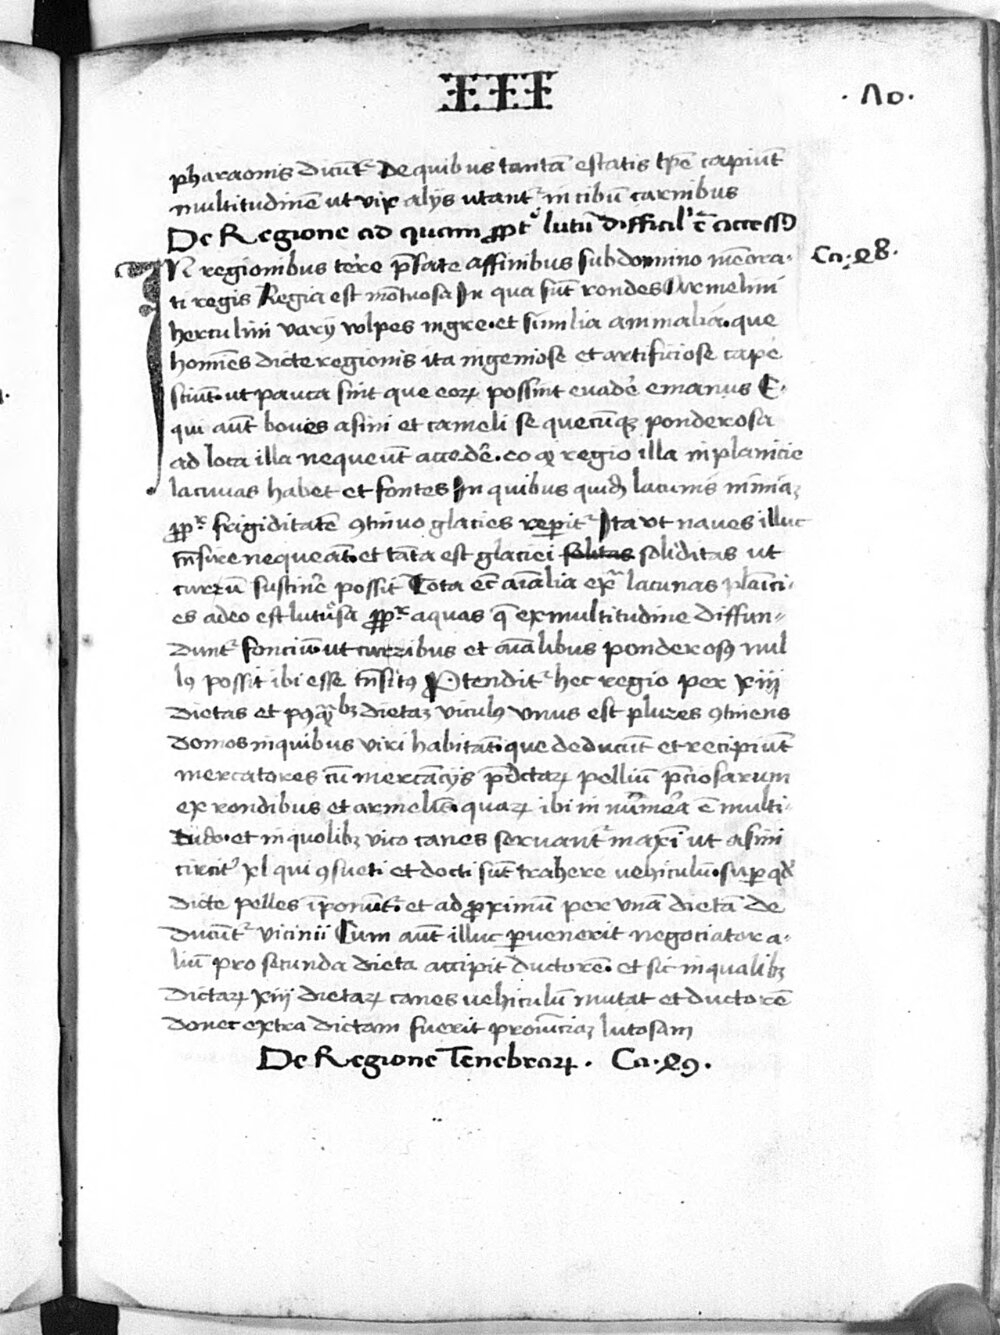 III
· Λo ·
pharaonis dicũt᷑ De quibus tantã estatis tp̃e capiũt
multitudinẽ ut vix alijs utant᷑ in cibũ carnibus
De Regione ad quam ꝓpt᷑ lutũ difficil' ẽ accessꝰ
Ca· ꝯ8·
IN regionibus terre p̃fate affinibus sub domino mẽora-
ti regis Regia est mõtuosa In qua sũt rondes Armelini
herculini varij volpes nigre· et similia animalia· que
homĩes dicte regionis ita ingeniose et artificiose cape᷑
sciũt· ut pauca sint que eoꝝ possint evadẽ e manus E-
qui aũt boves asini et cameli se quecũqꝫ ponderosa
ad loca illa nequeũt accedẽ· eo ꝙ regio illa in planicie
lacuvas habet et fontes In quibus quidẽ lacunis nimiaꝫ
ꝓpt᷑ frigiditatẽ ꝯtinuo glacies reperit᷑ Ita ut naves illuc
trãsire nequeãt· et tãta est glaciei solitas soliditas ut
currũ sustinẽ possit Tota eĩ aĩalia ext᷑ lacunas planici-
es adeo est lutuosa ꝓpt᷑ aquas q̃ ex multitudine diffun-
dunt᷑ fonciũ· ut curribus et aĩalibus ponderosꝰ nul
lꝰ possit ibi esse trãsitꝰ Ptendit᷑ hec regio per xiij
dietas et p ꝗ̃lꝫ dietaꝫ viculꝰ vnus est plures ꝯtinens
domos in quibus viri habitãt· que deducũt et recipiũt
mercatores cũ mercãcijs p̃dc̃aꝝ pelliũ p̃ciosarum
ex rondibus et armelinis· quaꝝ ibi in nũmera ẽ multi-
tudo· et in quolibꝫ vico canes servant᷑ maxĩ ut asini
circit᷑ xl qui ꝯsueti et docti sũt trahere vehiculũ· super qd̃
dicte pelles ĩponũt᷑· et ad ꝓximũ per vnã dietã de
ducũt᷑ vicinii Cum aũt illuc pervenerit negociator a-
liũ pro secunda dieta accipit ductorẽ· et sic in qualibꝫ
dictaꝝ xiij dietaꝝ canes vehiculũ mutat et ductorẽ
donec extra dictam fuerit provĩciaꝫ lutosam
De Regione Tenebraꝝ · Ca· ꝯ9·